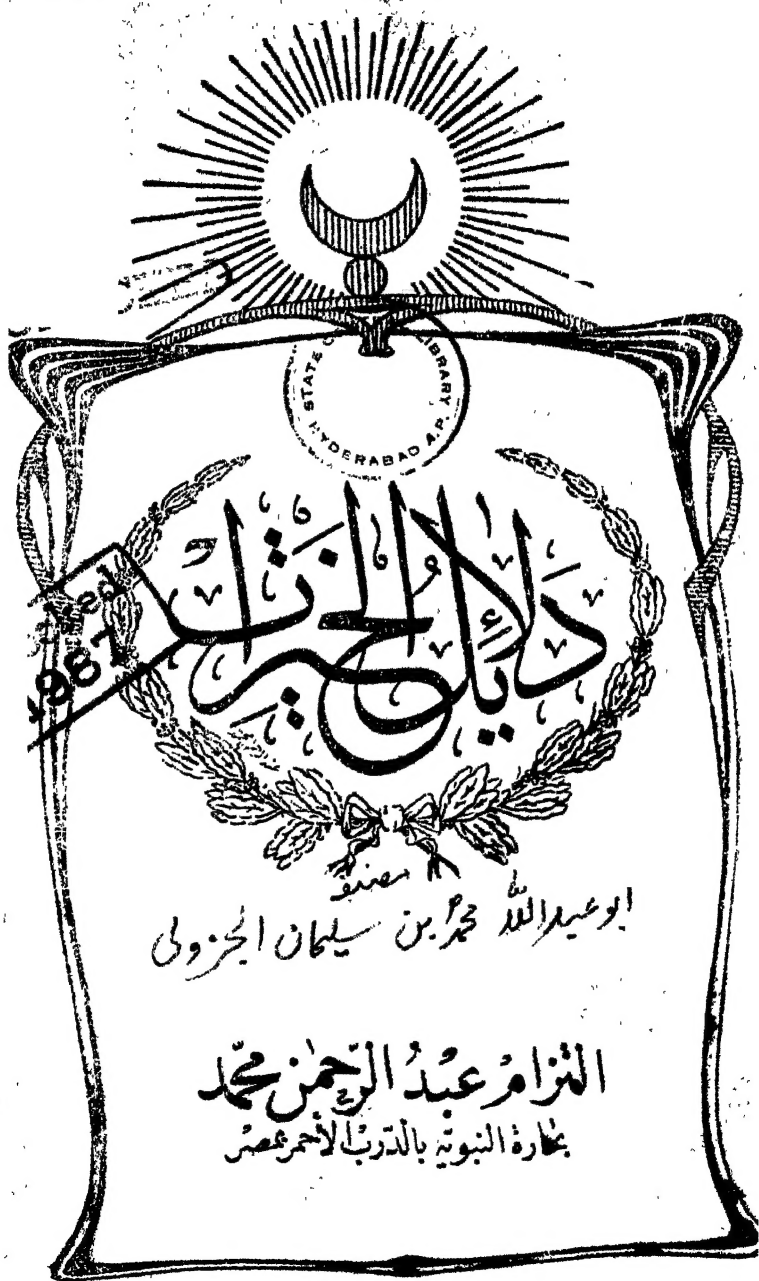 STATE LIBRARY
HYDERABAD A.P.
دَلَائِلُ الْخَيْرَاتِ
1987
مصنف
ابو عبد الله محمد بن سليمان الجزولى
التزام عبد الرحمن محمد
بحارة النبوية بالدرب الأحمر بمصر